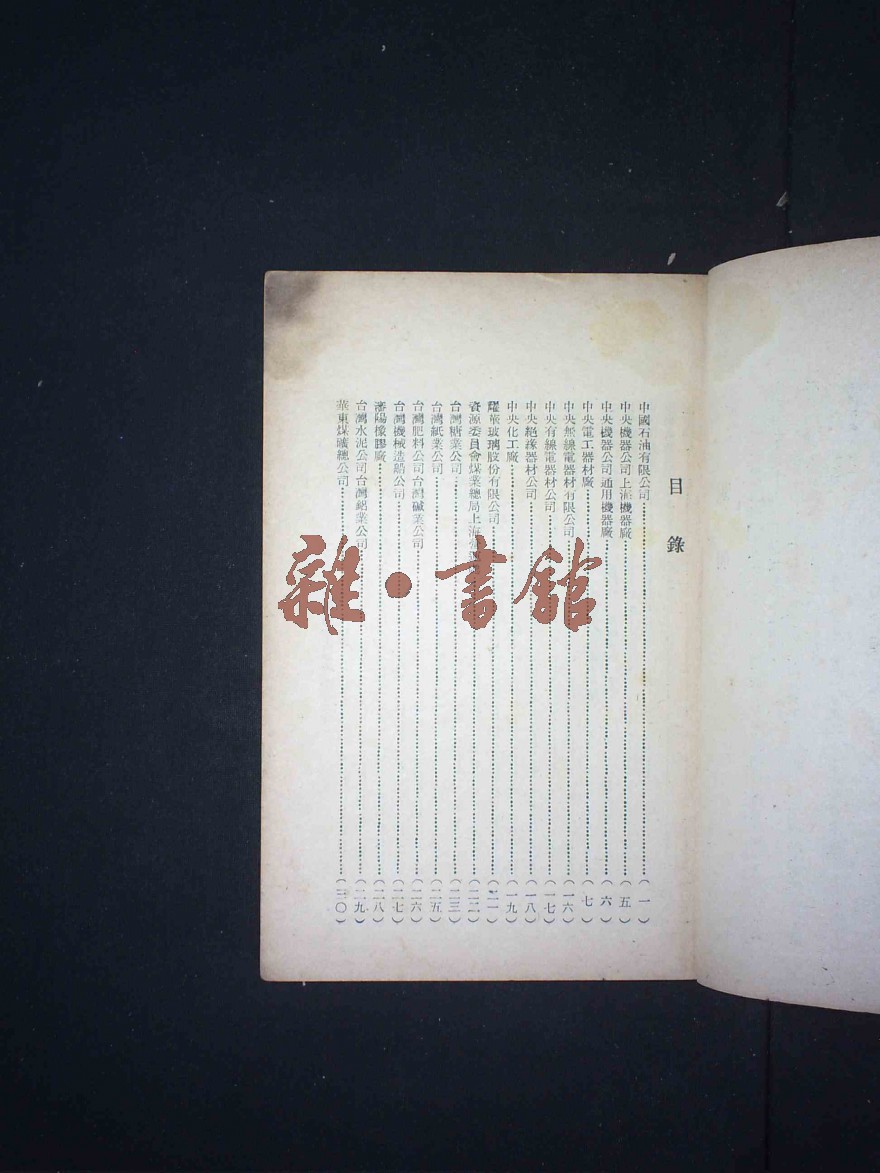 目錄
中國石油有限公司（一）
中央機器公司上海機器廠（五）
中央機器公司通用機器廠（六）
中央電工器材廠（七）
中央無線電器材有限公司（一六）
中央有線電器材公司（一七）
中央絕緣器材公司（一八）
中央化工廠（一九）
耀華玻璃股份有限公司（二一）
資源委員會煤業總局上海（二二）
台灣糖業公司（二三）
台灣紙業公司（二五）
台灣肥料公司台灣碱業公司（二六）
台灣機械造船公司（二七）
瀋陽橡膠廠（二八）
台灣水泥公司台灣鋁業公司（二九）
華東煤礦總公司（三〇）
雜·書館